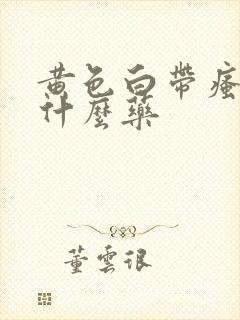 黄色白帶瘙
什麼藥
董雲很